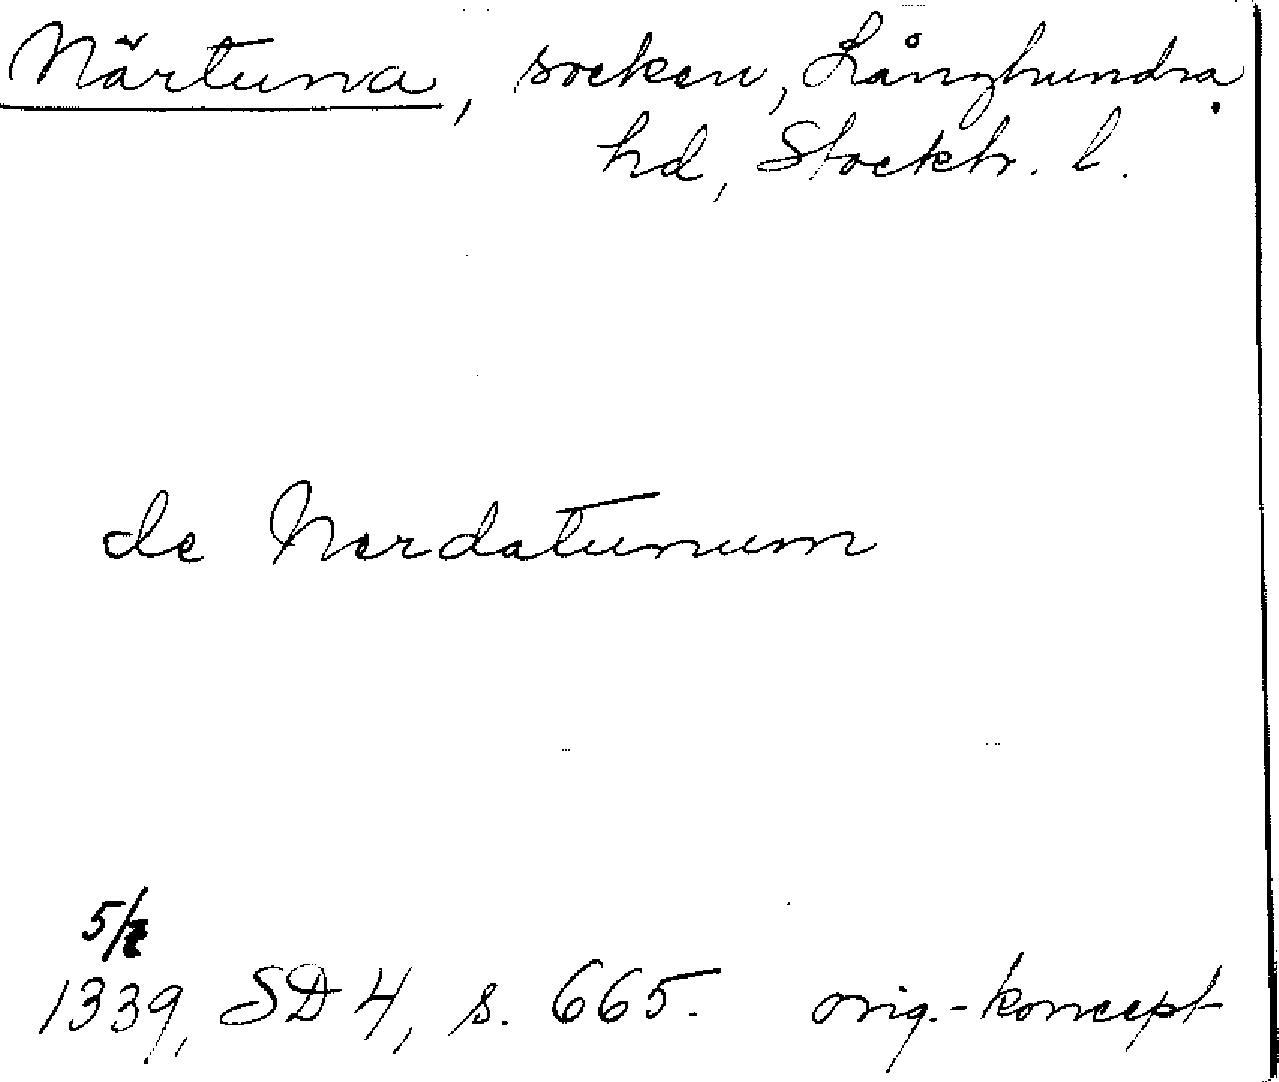 Närtuna, socken, Långhundra
hd, Stockh. l.
de Nerdatunum
5/
1339, SD 4, s. 665. orig.-koncept